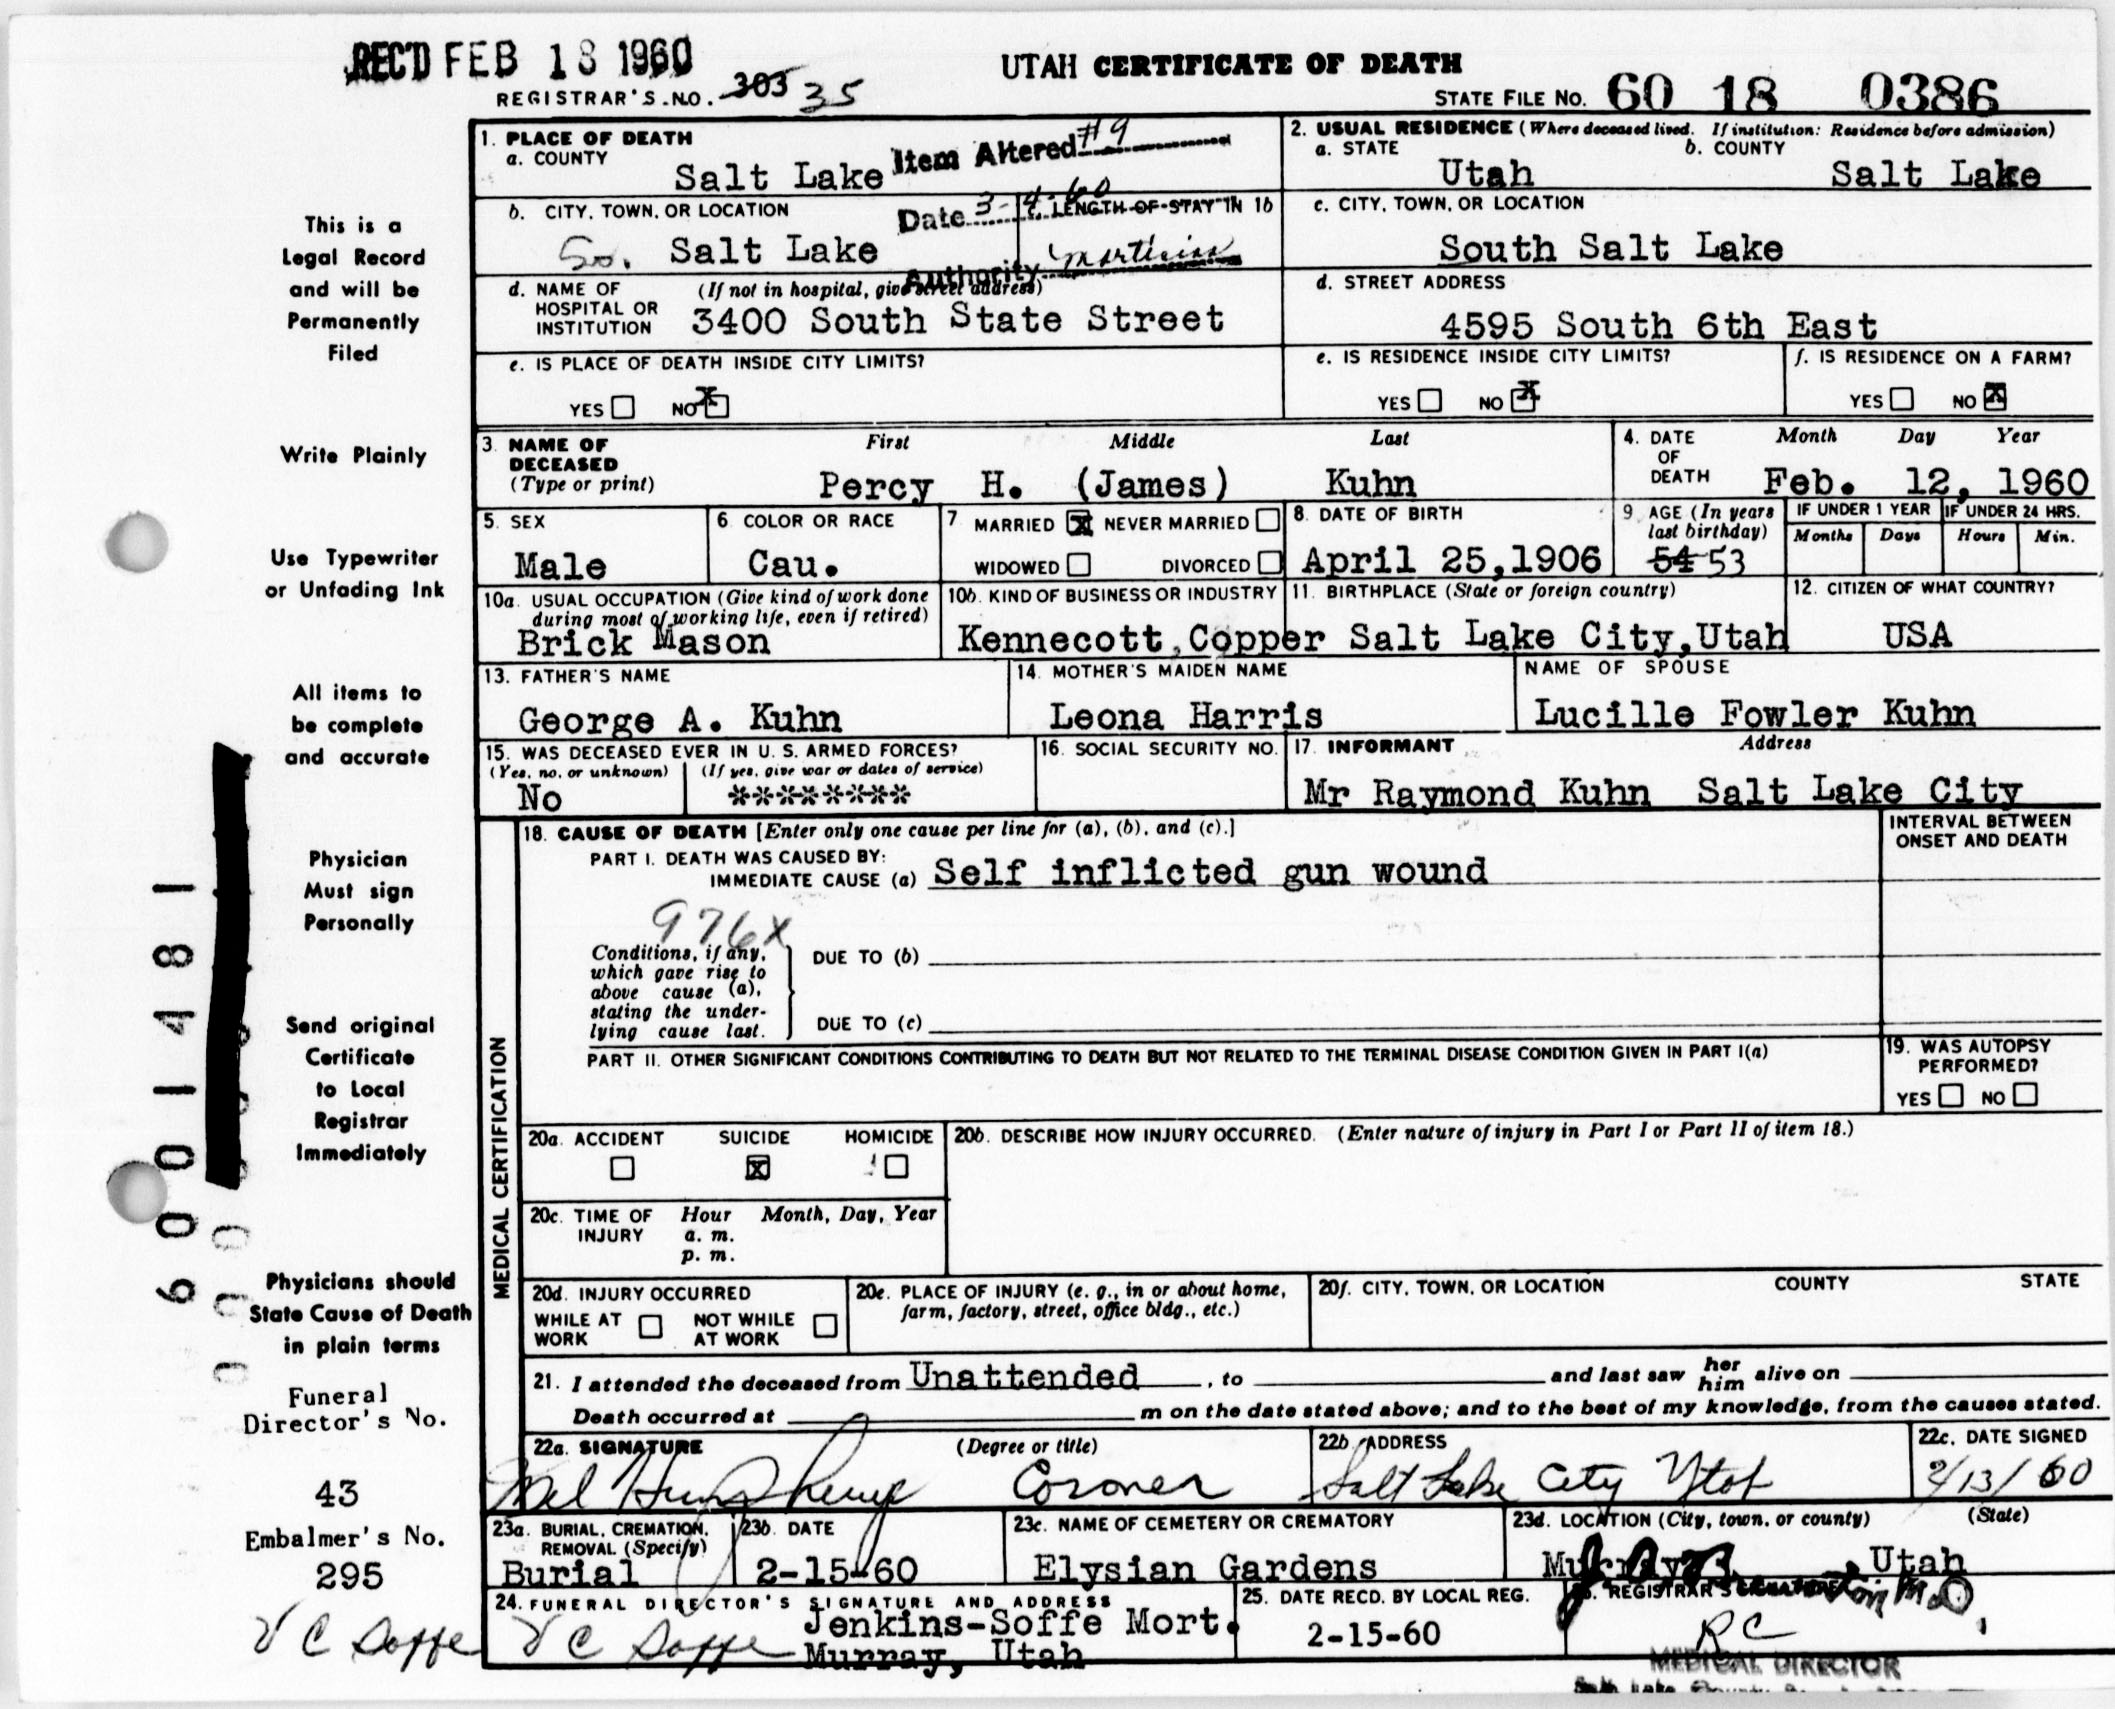 REC'D FEB 18 1960
UTAH CERTIFICATE OF DEATH
REGISTRAR'S NO. 303 35
STATE FILE NO. 60 18 0386
This is a
Legal Record
and will be
Permanently
Filed
Write Plainly
Use Typewriter
or Unfading Ink
All items to
be complete
and accurate
Physician
Must sign
Personally
Send original
Certificate
to Local
Registrar
Immediately
Physicians should
State Cause of Death
in plain terms
Funeral
Director's No.
43
Embalmer's No.
295
V C Soffe
6001481
1. PLACE OF DEATH
a. COUNTY
Salt Lake
Item Altered #9
Date 3-4-60
Authority
2. USUAL RESIDENCE (Where deceased lived. If institution: Residence before admission)
a. STATE
Utah
b. COUNTY
Salt Lake
b. CITY, TOWN, OR LOCATION
So. Salt Lake
c. LENGTH OF STAY IN 1b
c. CITY, TOWN, OR LOCATION
South Salt Lake
d. NAME OF HOSPITAL OR INSTITUTION
(If not in hospital, give street address)
3400 South State Street
d. STREET ADDRESS
4595 South 6th East
e. IS PLACE OF DEATH INSIDE CITY LIMITS?
YES NO X
e. IS RESIDENCE INSIDE CITY LIMITS?
YES NO X
f. IS RESIDENCE ON A FARM?
YES NO X
3. NAME OF DECEASED (Type or print)
First Middle Last
Percy H. (James) Kuhn
4. DATE OF DEATH
Month Day Year
Feb. 12, 1960
5. SEX
Male
6. COLOR OR RACE
Cau.
7. MARRIED X NEVER MARRIED
WIDOWED DIVORCED
8. DATE OF BIRTH
April 25,1906
9. AGE (In years last birthday)
54 53
IF UNDER 1 YEAR
Months Days
IF UNDER 24 HRS.
Hours Min.
10a. USUAL OCCUPATION (Give kind of work done during most of working life, even if retired)
Brick Mason
10b. KIND OF BUSINESS OR INDUSTRY
Kennecott Copper
11. BIRTHPLACE (State or foreign country)
Salt Lake City,Utah
12. CITIZEN OF WHAT COUNTRY?
USA
13. FATHER'S NAME
George A. Kuhn
14. MOTHER'S MAIDEN NAME
Leona Harris
NAME OF SPOUSE
Lucille Fowler Kuhn
15. WAS DECEASED EVER IN U. S. ARMED FORCES?
(Yes, no, or unknown) (If yes, give war or dates of service)
No ********
16. SOCIAL SECURITY NO.
17. INFORMANT Address
Mr Raymond Kuhn Salt Lake City
MEDICAL CERTIFICATION
18. CAUSE OF DEATH [Enter only one cause per line for (a), (b), and (c).]
PART I. DEATH WAS CAUSED BY:
IMMEDIATE CAUSE (a) Self inflicted gun wound
INTERVAL BETWEEN ONSET AND DEATH
976x
Conditions, if any, which gave rise to above cause (a), stating the underlying cause last.
DUE TO (b)
DUE TO (c)
PART II. OTHER SIGNIFICANT CONDITIONS CONTRIBUTING TO DEATH BUT NOT RELATED TO THE TERMINAL DISEASE CONDITION GIVEN IN PART I(a)
19. WAS AUTOPSY PERFORMED?
YES NO
20a. ACCIDENT SUICIDE HOMICIDE
X
20b. DESCRIBE HOW INJURY OCCURRED. (Enter nature of injury in Part I or Part II of item 18.)
20c. TIME OF INJURY
Hour Month, Day, Year
a. m.
p. m.
20d. INJURY OCCURRED
WHILE AT WORK NOT WHILE AT WORK
20e. PLACE OF INJURY (e. g., in or about home, farm, factory, street, office bldg., etc.)
20f. CITY, TOWN, OR LOCATION COUNTY STATE
21. I attended the deceased from Unattended, to and last saw her him alive on
Death occurred at m on the date stated above; and to the best of my knowledge, from the causes stated.
22a. SIGNATURE (Degree or title)
Mel Humpherys Coroner
22b. ADDRESS
Salt Lake City Utah
22c. DATE SIGNED
2/13/60
23a. BURIAL, CREMATION, REMOVAL (Specify)
Burial
23b. DATE
2-15-60
23c. NAME OF CEMETERY OR CREMATORY
Elysian Gardens
23d. LOCATION (City, town, or county) (State)
Murray Utah
24. FUNERAL DIRECTOR'S SIGNATURE AND ADDRESS
V C Soffe Jenkins-Soffe Mort.
Murray, Utah
25. DATE RECD. BY LOCAL REG.
2-15-60
26. REGISTRAR'S SIGNATURE
RC
MEDICAL DIRECTOR